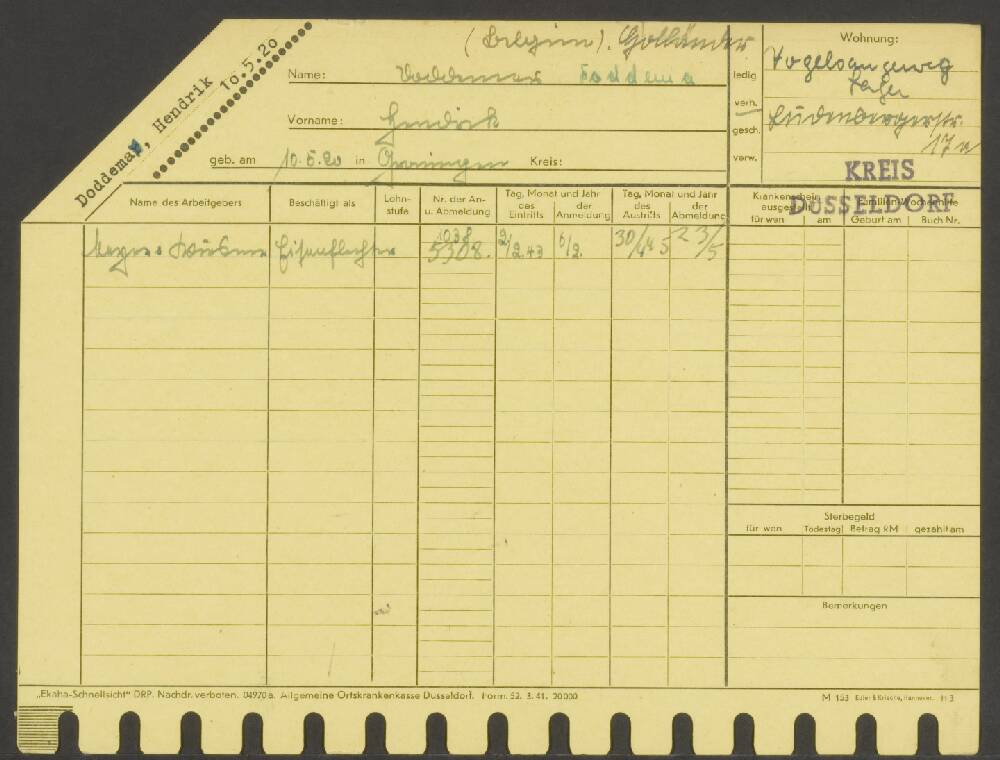 Doddema, Hendrik 10.5.20
(Belgien). Holländer
Name: Doddema Foddema
Vorname: Hendrik
geb. am 10.5.20 in Groningen Kreis:
ledig
verh.
gesch.
verw.
Wohnung:
Vogelsangerweg
Lager
Lüdenbergerstr.
17a
KREIS
DÜSSELDORF
Name des Arbeitgebers
Beschäftigt als
Lohn-
stufe
Nr. der An-
u. Abmeldung
Tag, Monat und Jahr
des
Eintritts
der
Anmeldung
Tag, Monat und Jahr
des
Austritts
der
Abmeldung
Krankenschein
ausgestellt
für wan
am
Familien-Wochenhilfe
Geburt am
Buch Nr.
Eisenflechter
1038
5308.
2/2.43
6/2.
30/4 45
23/5
Sterbegeld
für wen
Todestag
Betrag RM
gezahlt am
Bemerkungen
„Ekaha-Schnellsicht" DRP. Nachdr. verboten. 04970a. Allgemeine Ortskrankenkasse Düsseldorf. Form. 52. 3. 41. 20000
M 153 Euler & Krische, Hannover. H 3